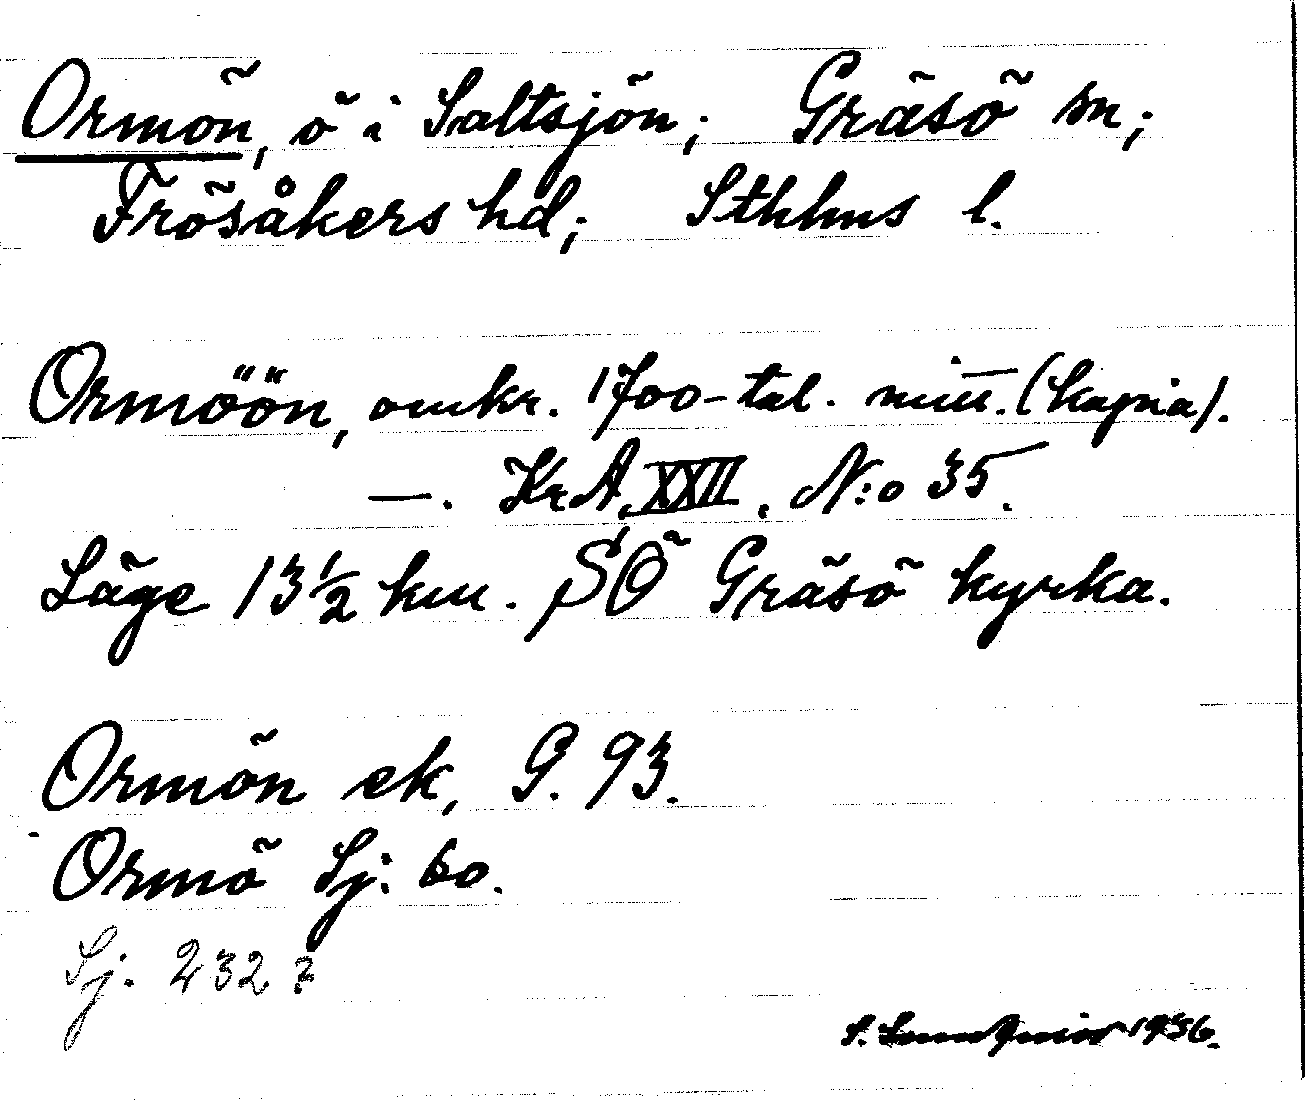 Ormön, ö i Saltsjön; Gräsö sn;
Frösåkers hd; Sthlms l.
Ormöön, omkr. 1700-tal. mitt. (kopia).
—. KrA, XXII, N:o 35.
Läge 13½ km. SÖ Gräsö kyrka.
Ormön ek, G. 93.
Ormö Sj. 60.
Sj. 232 7
1936.